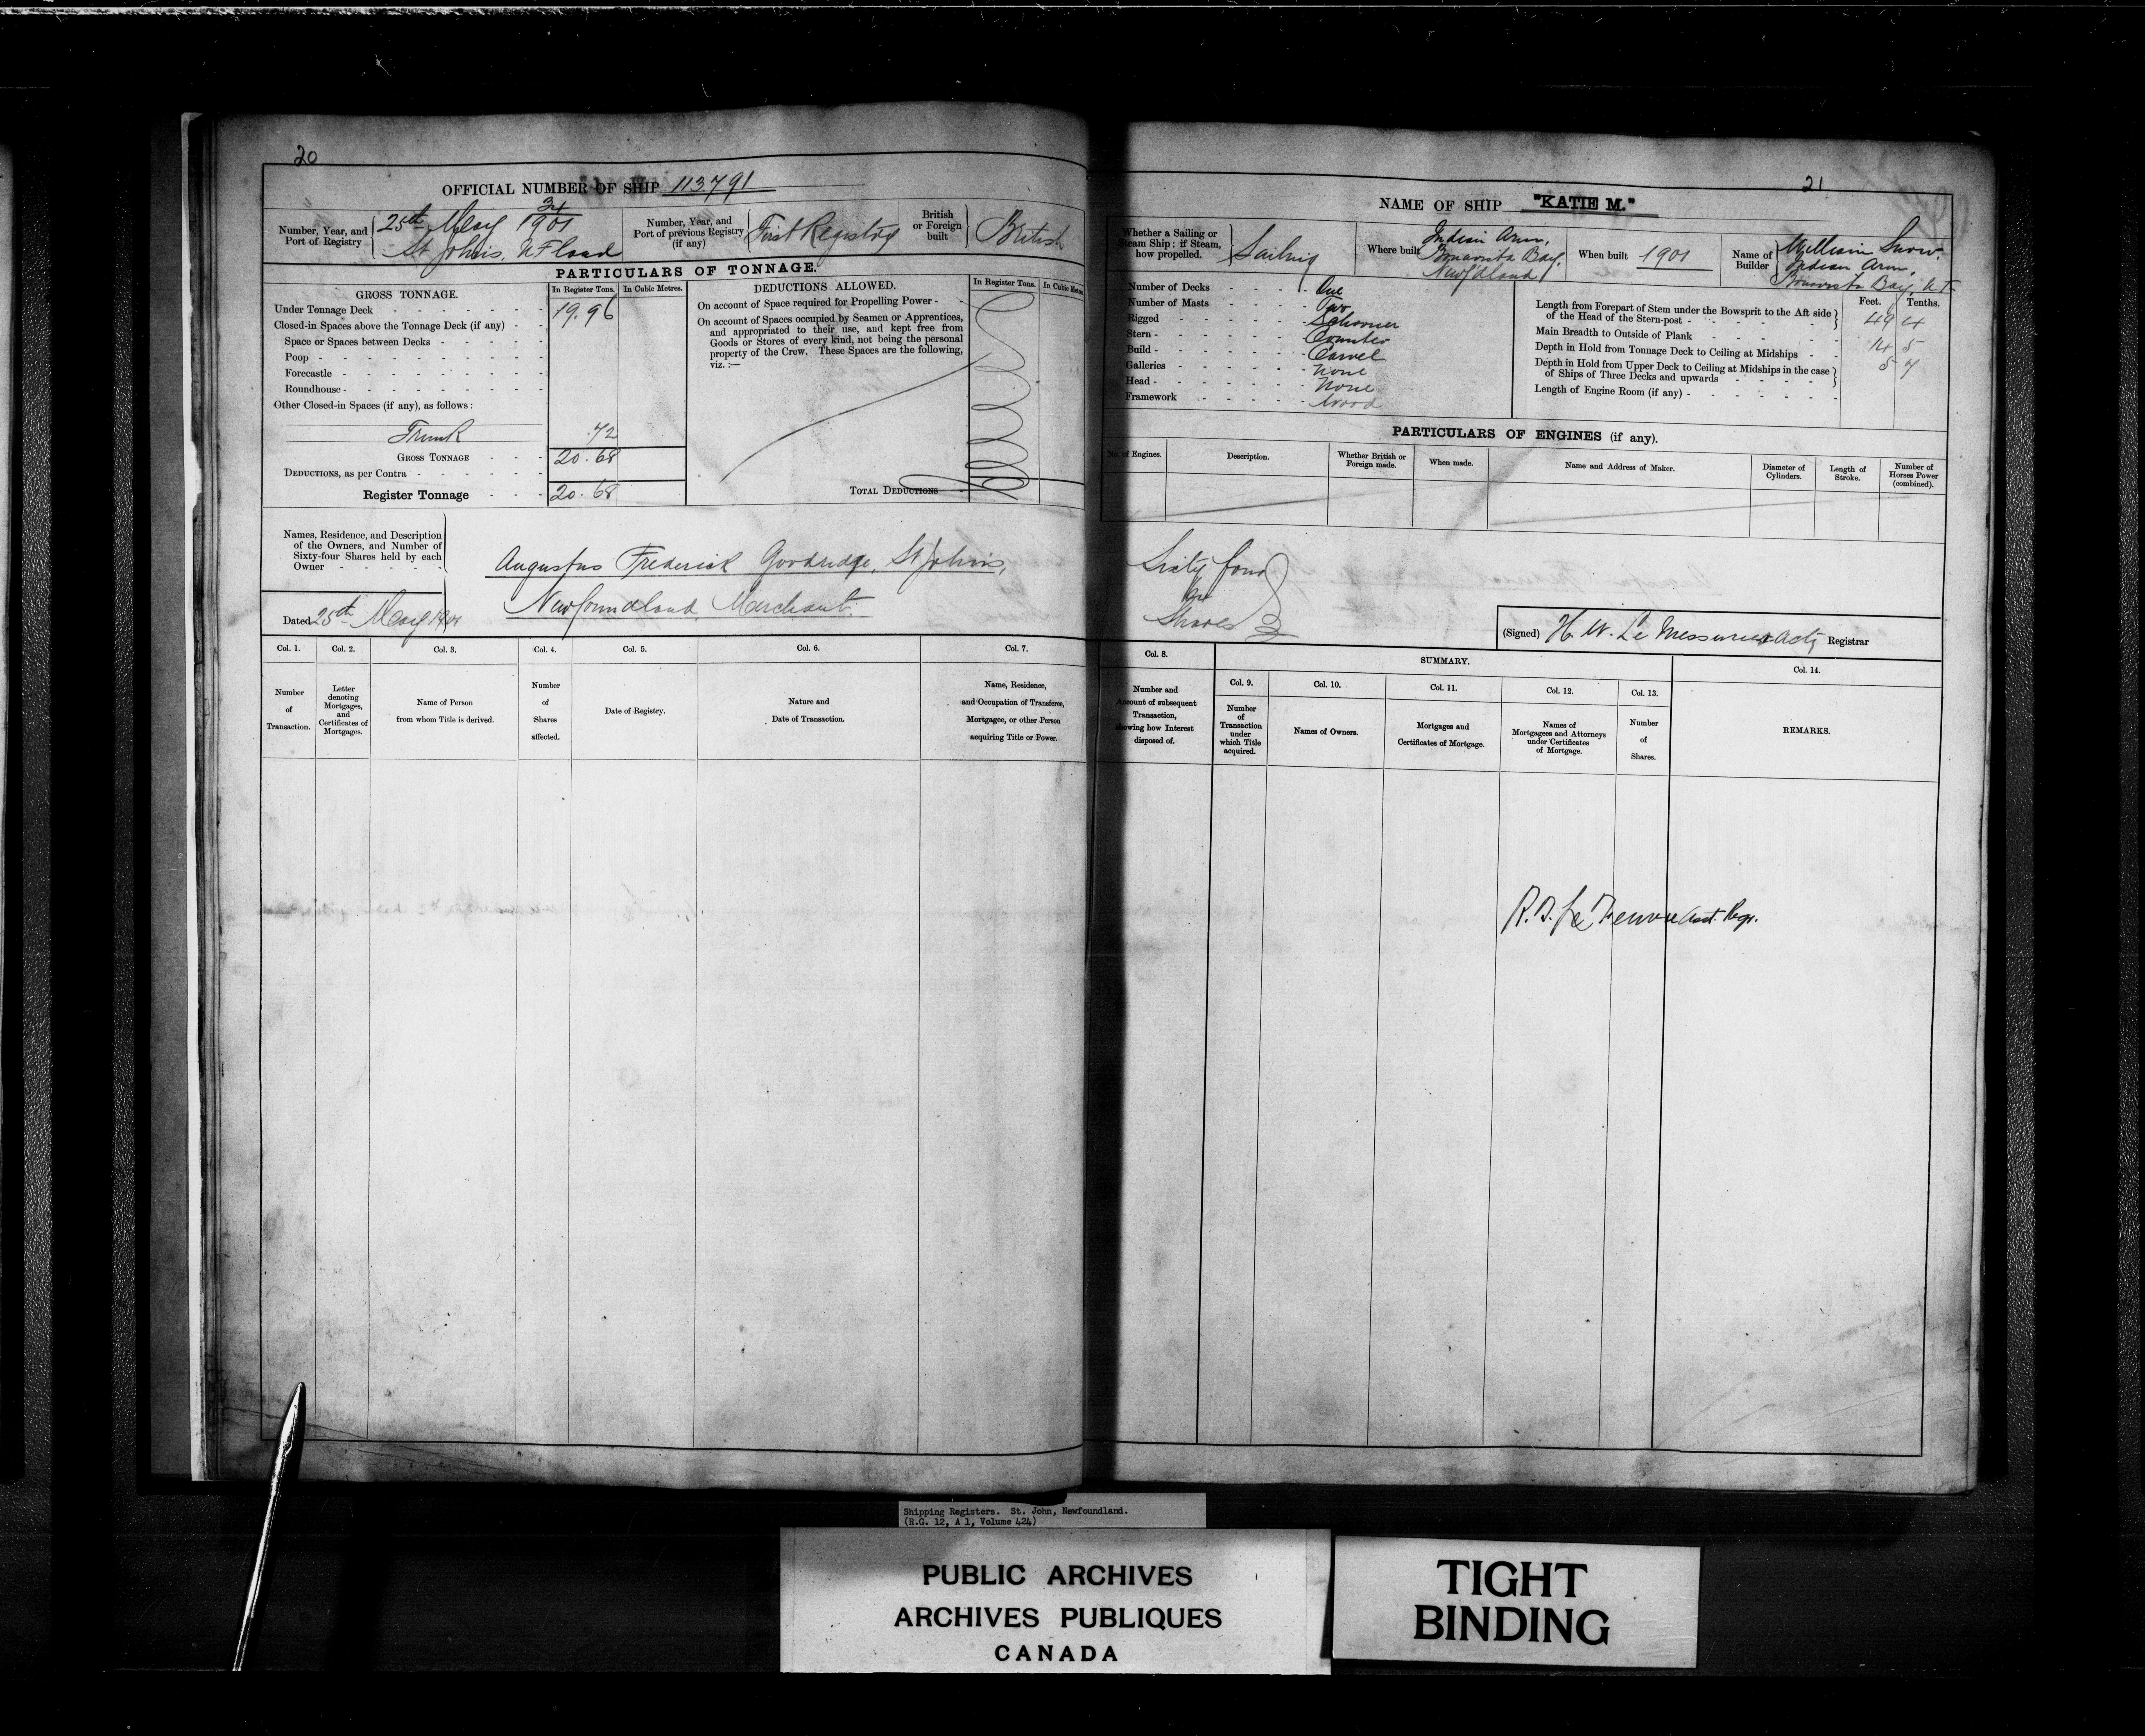 20
OFFICIAL NUMBER OF SHIP 113.791
Number, Year, and Port of Registry
25th May 34/1901
St John's, NFland
Number, Year, and Port of previous Registry (if any)
First Registry
British or Foreign built
British
PARTICULARS OF TONNAGE.
GROSS TONNAGE.
In Register Tons.
In Cubic Metres.
Under Tonnage Deck 19.96
Closed-in Spaces above the Tonnage Deck (if any)
Space or Spaces between Decks
Poop
Forecastle
Roundhouse
Other Closed-in Spaces (if any), as follows:
Trunk .72
GROSS TONNAGE 20.68
DEDUCTIONS, as per Contra
Register Tonnage 20.68
DEDUCTIONS ALLOWED.
In Register Tons.
In Cubic Metres
On account of Space required for Propelling Power -
On account of Spaces occupied by Seamen or Apprentices,
and appropriated to their use, and kept free from
Goods or Stores of every kind, not being the personal
property of the Crew. These Spaces are the following,
viz. :—
TOTAL DEDUCTIONS
Names, Residence, and Description
of the Owners, and Number of
Sixty-four Shares held by each
Owner
Augustus Frederick Goodridge, St John's,
Newfoundland, Merchant.
Dated 25th May 1901
Col. 1.
Number
of
Transaction.
Col. 2.
Letter
denoting
Mortgages,
and
Certificates of
Mortgages.
Col. 3.
Name of Person
from whom Title is derived.
Col. 4.
Number
of
Shares
affected.
Col. 5.
Date of Registry.
Col. 6.
Nature and
Date of Transaction.
Col. 7.
Name, Residence,
and Occupation of Transferee,
Mortgagee, or other Person
acquiring Title or Power.
21
NAME OF SHIP "KATIE M."
Whether a Sailing or
Steam Ship; if Steam,
how propelled.
Sailing
Where built
Indian Arm,
Bonavista Bay,
Newf'dland
When built 1901
Name of Builder
William Snow.
Indian Arm,
Bonavista Bay, N.F.
Number of Decks One
Number of Masts Two
Rigged Schooner
Stern Counter
Build Carvel
Galleries None
Head None
Framework Wood
Feet. Tenths.
Length from Forepart of Stem under the Bowsprit to the Aft side
of the Head of the Stern-post 49 4
Main Breadth to Outside of Plank 14 5
Depth in Hold from Tonnage Deck to Ceiling at Midships 5 7
Depth in Hold from Upper Deck to Ceiling at Midships in the case
of Ships of Three Decks and upwards
Length of Engine Room (if any)
PARTICULARS OF ENGINES (if any).
No. of Engines.
Description.
Whether British or
Foreign made.
When made.
Name and Address of Maker.
Diameter of
Cylinders.
Length of
Stroke.
Number of
Horses Power
(combined).
Sixty four
64
Shares
(Signed) H. W. Le Messurier Actg Registrar
Col. 8.
Number and
Amount of subsequent
Transaction,
showing how Interest
disposed of.
SUMMARY.
Col. 9.
Number
of
Transaction
under
which Title
acquired.
Col. 10.
Names of Owners.
Col. 11.
Mortgages and
Certificates of Mortgage.
Col. 12.
Names of
Mortgagees and Attorneys
under Certificates
of Mortgage.
Col. 13.
Number
of
Shares.
Col. 14.
REMARKS.
Asst. Regr.
Shipping Registers. St. John, Newfoundland.
(R.G. 12, A 1, Volume 424)
PUBLIC ARCHIVES
ARCHIVES PUBLIQUES
CANADA
TIGHT
BINDING